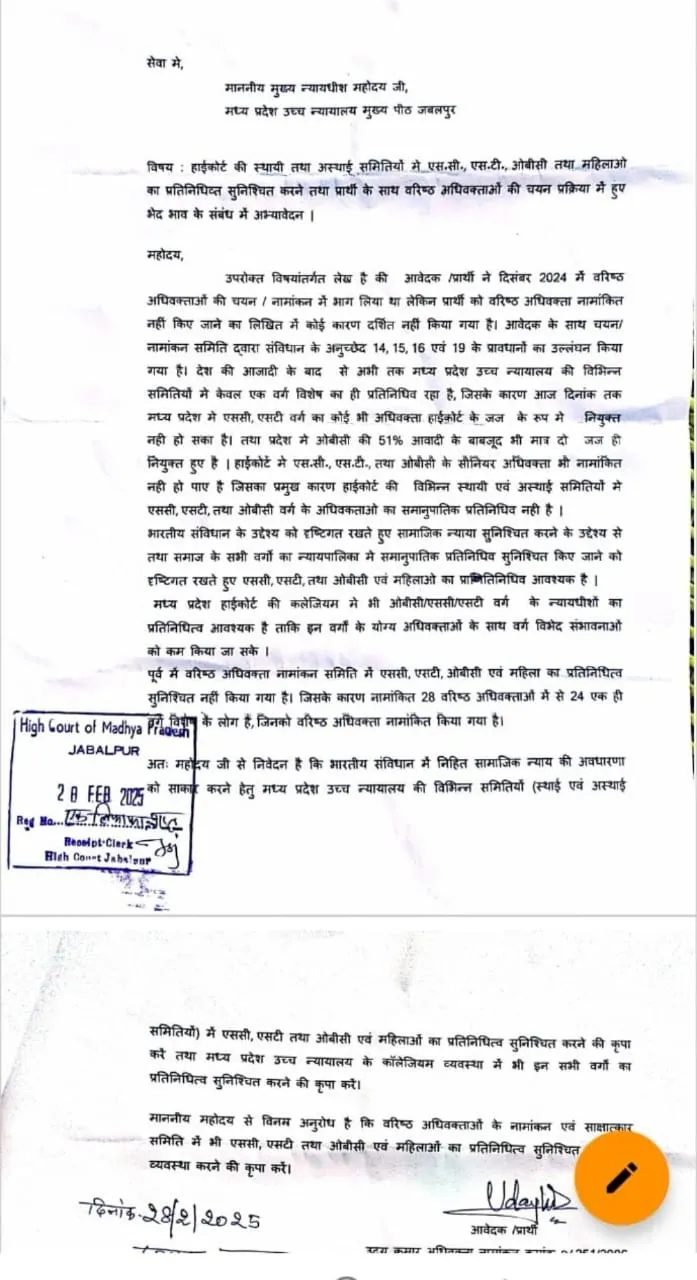 सेवा मे,
माननीय मुख्य न्यायधीश महोदय जी,
मध्य प्रदेश उच्च न्यायालय मुख्य पीठ जबलपुर
विषय : हाईकोर्ट की स्थायी तथा अस्थाई समितियों मे एस.सी., एस.टी., ओबीसी तथा महिलाओ
का प्रतिनिधिव्त सुनिश्चित करने तथा प्रार्थी के साथ वरिष्ठ अधिवक्ताओं की चयन प्रक्रिया में हुए
भेद भाव के संबंध में अभ्यावेदन |
महोदय,
उपरोक्त विषयांतर्गत लेख है की आवेदक /प्रार्थी ने दिसंबर 2024 में वरिष्ठ
अधिवक्ताओं की चयन / नामांकन में भाग लिया था लेकिन प्रार्थी को वरिष्ठ अधिवक्ता नामांकित
नहीं किए जाने का लिखित में कोई कारण दर्शित नहीं किया गया है। आवेदक के साथ चयन/
नामांकन समिति द्वारा संविधान के अनुच्छेद 14, 15, 16 एवं 19 के प्रावधानों का उल्लंघन किया
गया है। देश की आजादी के बाद से अभी तक मध्य प्रदेश उच्च न्यायालय की विभिन्न
समितियों मे केवल एक वर्ग विशेष का ही प्रतिनिधिव रहा है, जिसके कारण आज दिनांक तक
मध्य प्रदेश मे एससी, एसटी वर्ग का कोई भी अधिवक्ता हाईकोर्ट के जज के रूप मे नियुक्त
नही हो सका है। तथा प्रदेश मे ओबीसी की 51% आवादी के बाबजूद भी मात्र दो जज ही
नियुक्त हुए है | हाईकोर्ट मे एस.सी., एस.टी., तथा ओबीसी के सीनियर अधिवक्ता भी नामांकित
नही हो पाए है जिसका प्रमुख कारण हाईकोर्ट की विभिन्न स्थायी एवं अस्थाई समितियों मे
एससी, एसटी, तथा ओबीसी वर्ग के अधिवकताओ का समानुपातिक प्रतिनिधिव नही है |
भारतीय संविधान के उद्देश्य को दृष्टिगत रखते हुए सामाजिक न्याया सुनिश्चित करने के उद्देश्य से
तथा समाज के सभी वर्गो का न्यायपालिका मे समानुपातिक प्रतिनिधिव सुनिश्चित किए जाने को
दृष्टिगत रखते हुए एससी, एसटी, तथा ओबीसी एवं महिलाओ का प्रतिनिधिव आवश्यक है |
मध्य प्रदेश हाईकोर्ट की कलेजियम मे भी ओबीसी/एससी/एसटी वर्ग के न्यायधीशों का
प्रतिनिधित्व आवश्यक है ताकि इन वर्गो के योग्य अधिवक्ताओं के साथ वर्ग विभेद संभावनाओं
को कम किया जा सके |
पूर्व में वरिष्ठ अधिवक्ता नामांकन समिति में एससी, एसटी, ओबीसी एवं महिला का प्रतिनिधित्व
सुनिश्चित नहीं किया गया है। जिसके कारण नामांकित 28 वरिष्ठ अधिवक्ताओं में से 24 एक ही
वर्ग विशेष के लोग है, जिनको वरिष्ठ अधिवक्ता नामांकित किया गया है।
अतः महोदय जी से निवेदन है कि भारतीय संविधान में निहित सामाजिक न्याय की अवधारणा
को साकार करने हेतु मध्य प्रदेश उच्च न्यायालय की विभिन्न समितियों (स्थाई एवं अस्थाई
High Court of Madhya Pradesh
JABALPUR
28 FEB 2025
Reg No...
Receipt Clerk
High Court Jabalpur
समितियों) में एससी, एसटी तथा ओबीसी एवं महिलाओं का प्रतिनिधित्व सुनिश्चित करने की कृपा
करें तथा मध्य प्रदेश उच्च न्यायालय के कॉलेजियम व्यवस्था में भी इन सभी वर्गों का
प्रतिनिधित्व सुनिश्चित करने की कृपा करें।
माननीय महोदय से विनम्र अनुरोध है कि वरिष्ठ अधिवक्ताओं के नामांकन एवं साक्षात्कार
समिति में भी एससी, एसटी तथा ओबीसी एवं महिलाओं का प्रतिनिधित्व सुनिश्चित
व्यवस्था करने की कृपा करें।
दिनांक-28/2/2025
आवेदक /प्रार्थी
उदय कुमार अधिवक्ता